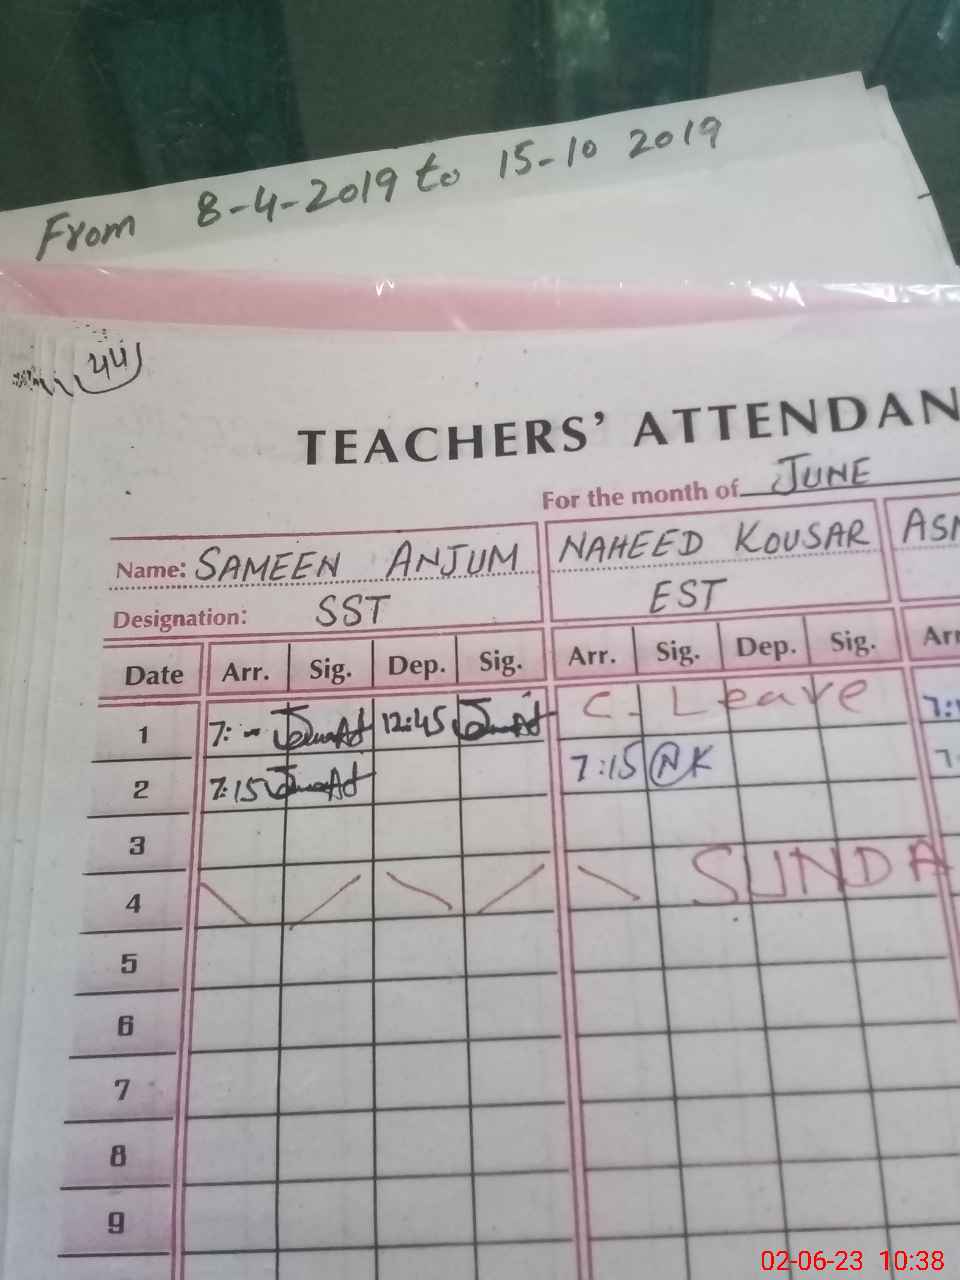 From 8-4-2019 to 15-10 2019
44
TEACHERS' ATTENDAN
For the month of JUNE
Name: SAMEEN ANJUM NAHEED KOUSAR ASM
Designation: SST EST
Date Arr. Sig. Dep. Sig. Arr. Sig. Dep. Sig. Arr
1 7:- 12:45 C. Leave 7:1
2 7:15 7:15 NK 7:
3
4 SUNDA
5
6
7
8
9
02-06-23 10:38